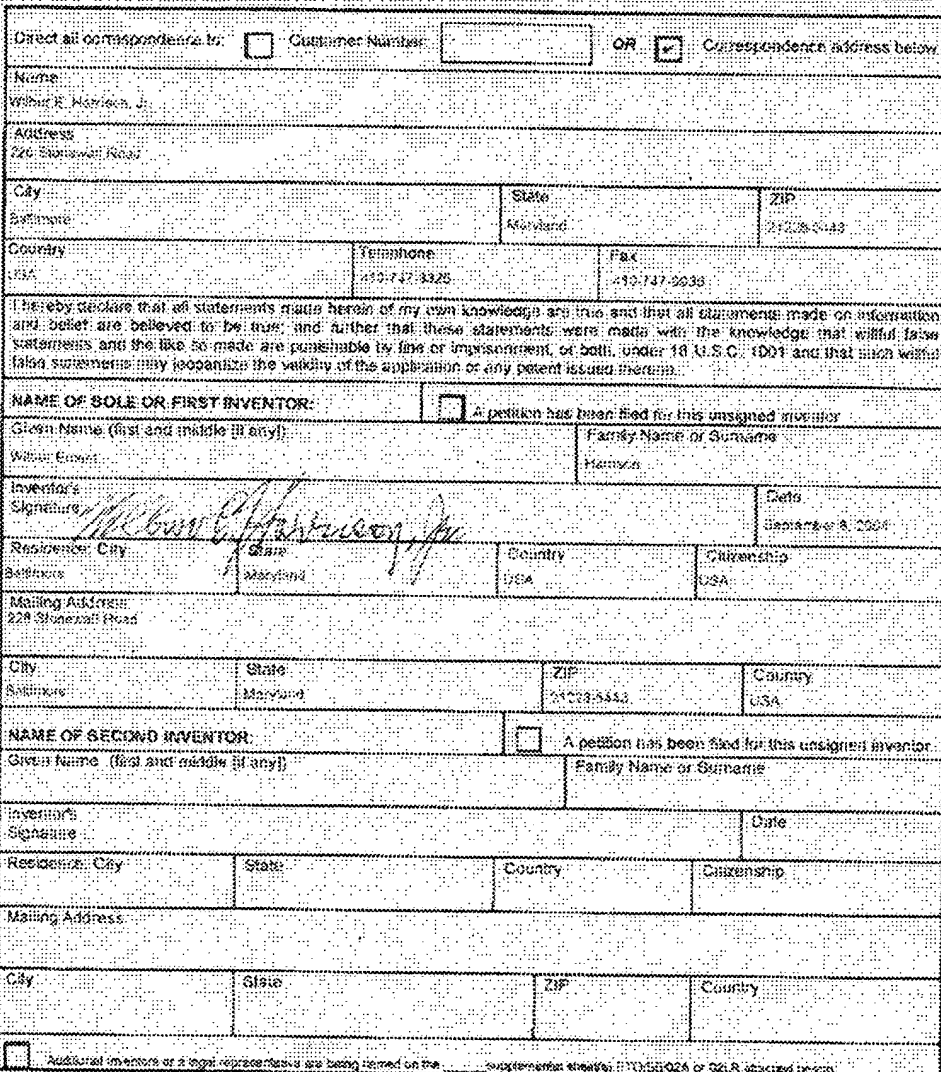 Direct all correspondence to: Customer Number: OR ✓ Correspondence address below
Name
Wilbur E. Harrison, Jr.
Address
Stonewall Road
City State ZIP
Baltimore Maryland
Country Telephone Fax
USA
I hereby declare that all statements made herein of my own knowledge are true and that all statements made on information
and belief are believed to be true; and further that these statements were made with the knowledge that willful false
statements and the like so made are punishable by fine or imprisonment, or both, under 18 U.S.C. 1001 and that such willful
false statements may jeopardize the validity of the application or any patent issued thereon.
NAME OF SOLE OR FIRST INVENTOR: A petition has been filed for this unsigned inventor
Given Name (first and middle [if any]) Family Name or Surname
Wilbur Ernest Harrison
Inventor's Signature Wilbur E. Harrison, Jr. Date
September
Residence: City State Country Citizenship
Baltimore Maryland USA USA
Mailing Address
Stonewall Road
City State ZIP Country
Baltimore Maryland USA
NAME OF SECOND INVENTOR: A petition has been filed for this unsigned inventor
Given Name (first and middle [if any]) Family Name or Surname
Inventor's Signature Date
Residence: City State Country Citizenship
Mailing Address
City State ZIP Country
Additional inventors or a legal representative are being named on the supplemental sheet(s) PTO/SB/02A or 02LR attached hereto.